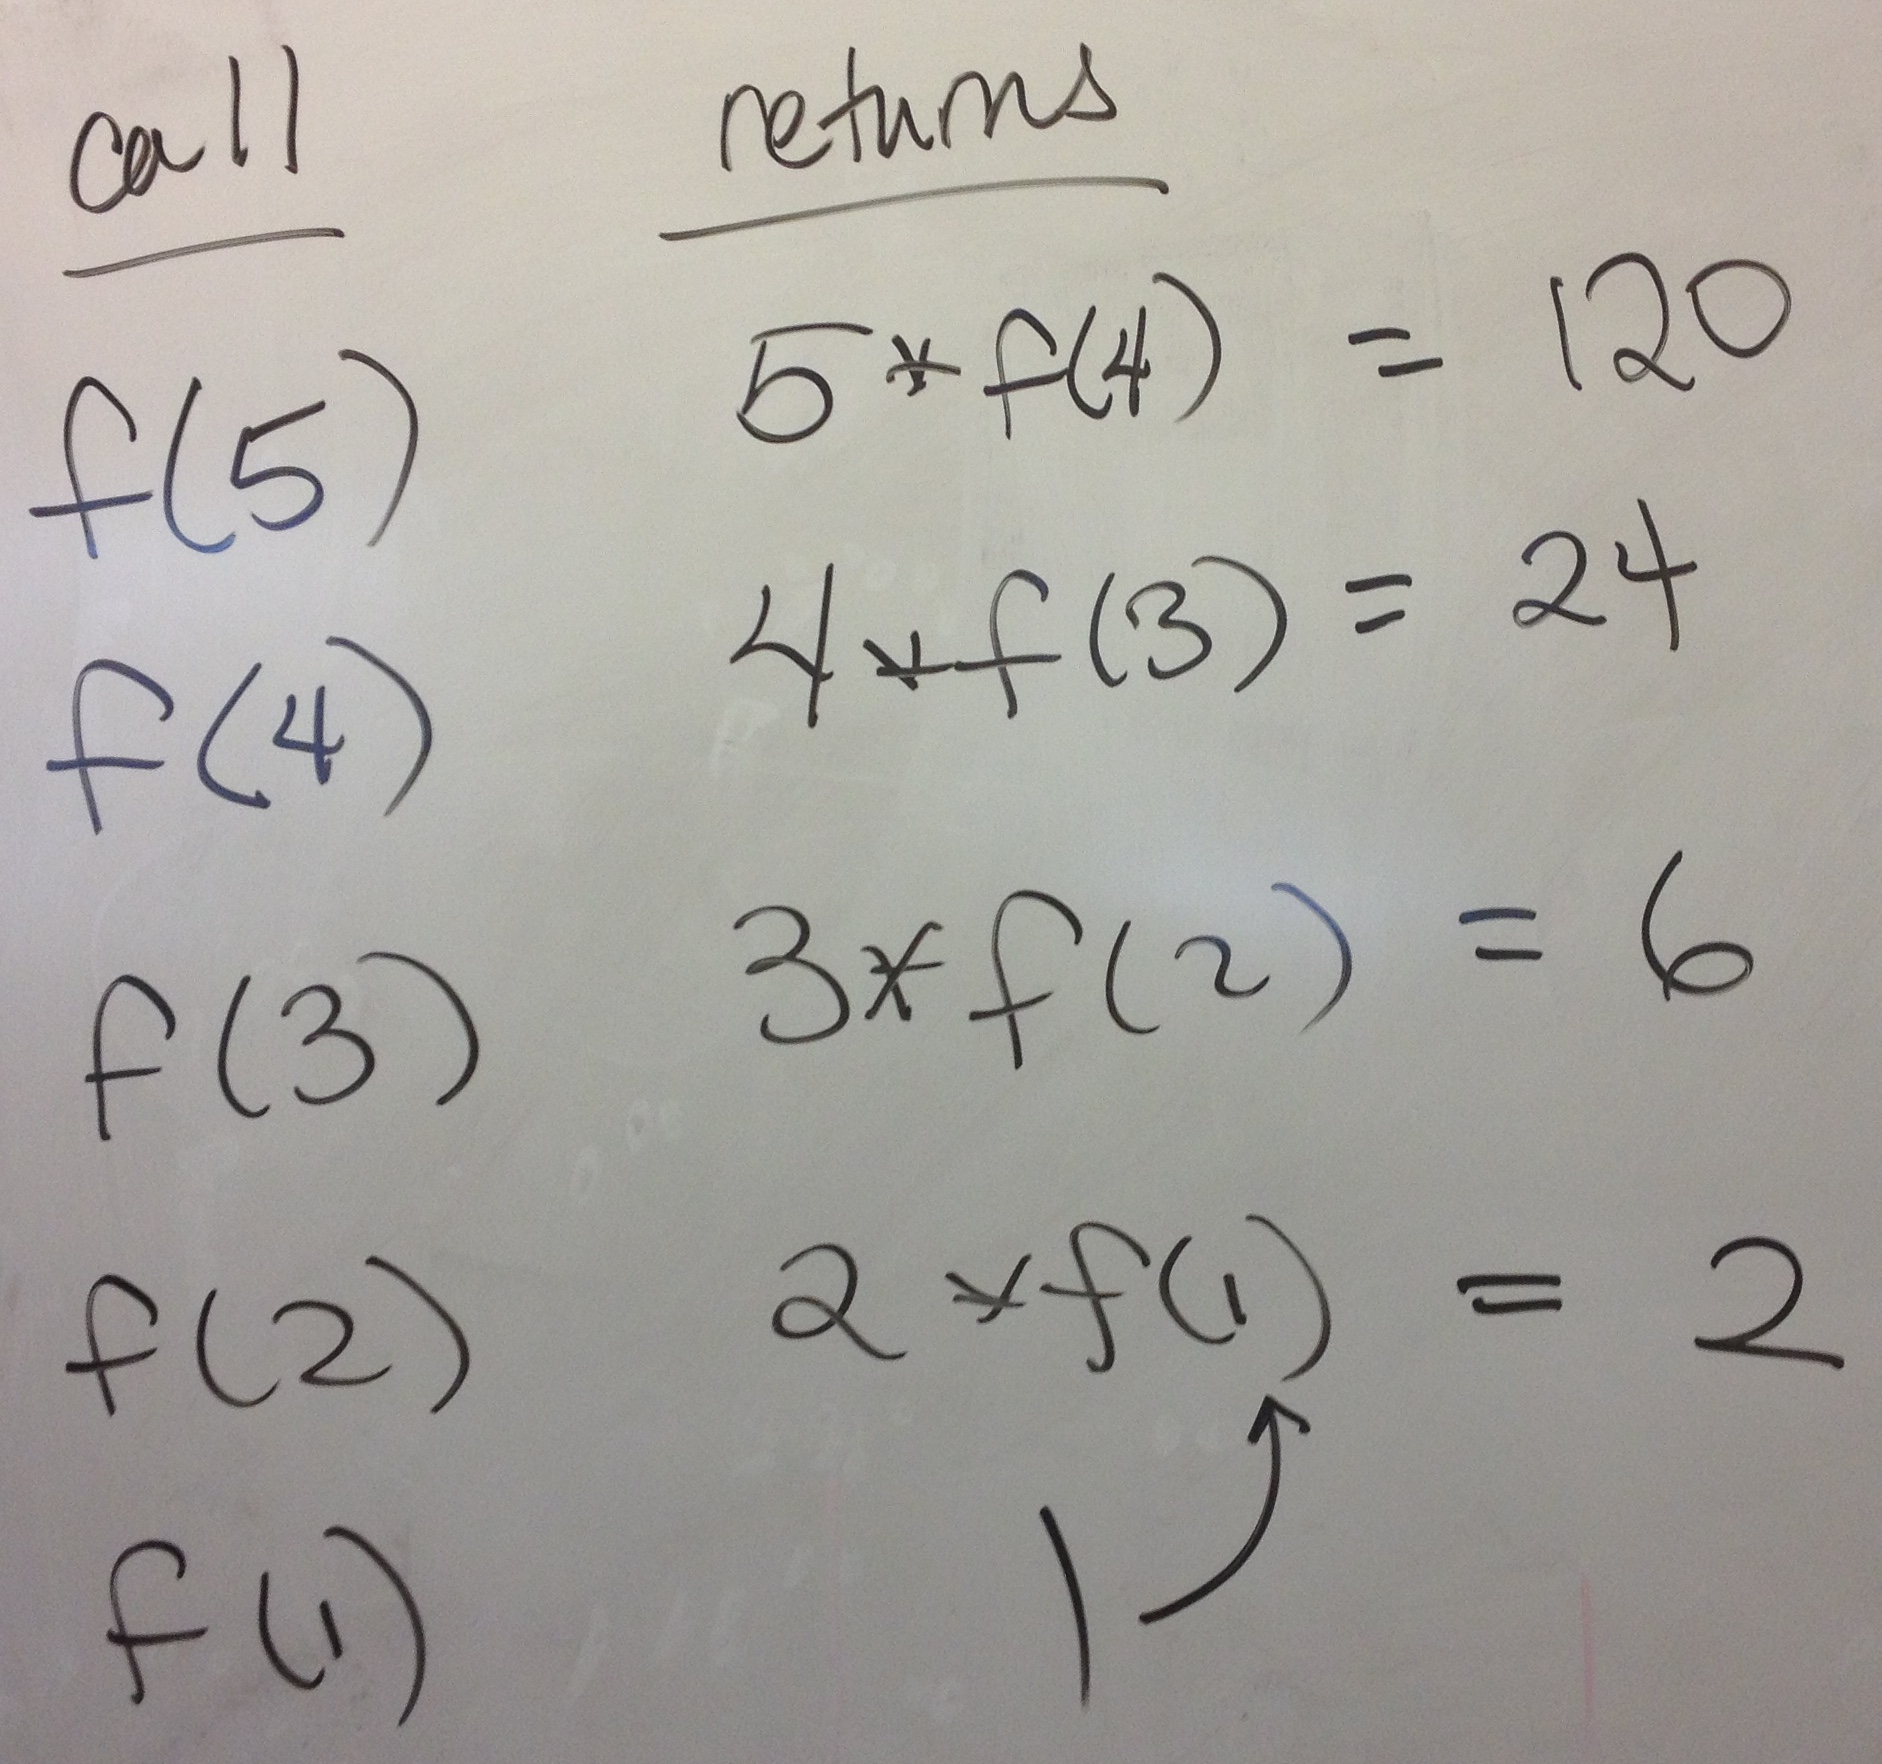 call returns
f(5) 5*f(4) = 120
f(4) 4*f(3) = 24
f(3) 3*f(2) = 6
f(2) 2*f(1) = 2
f(1) 1